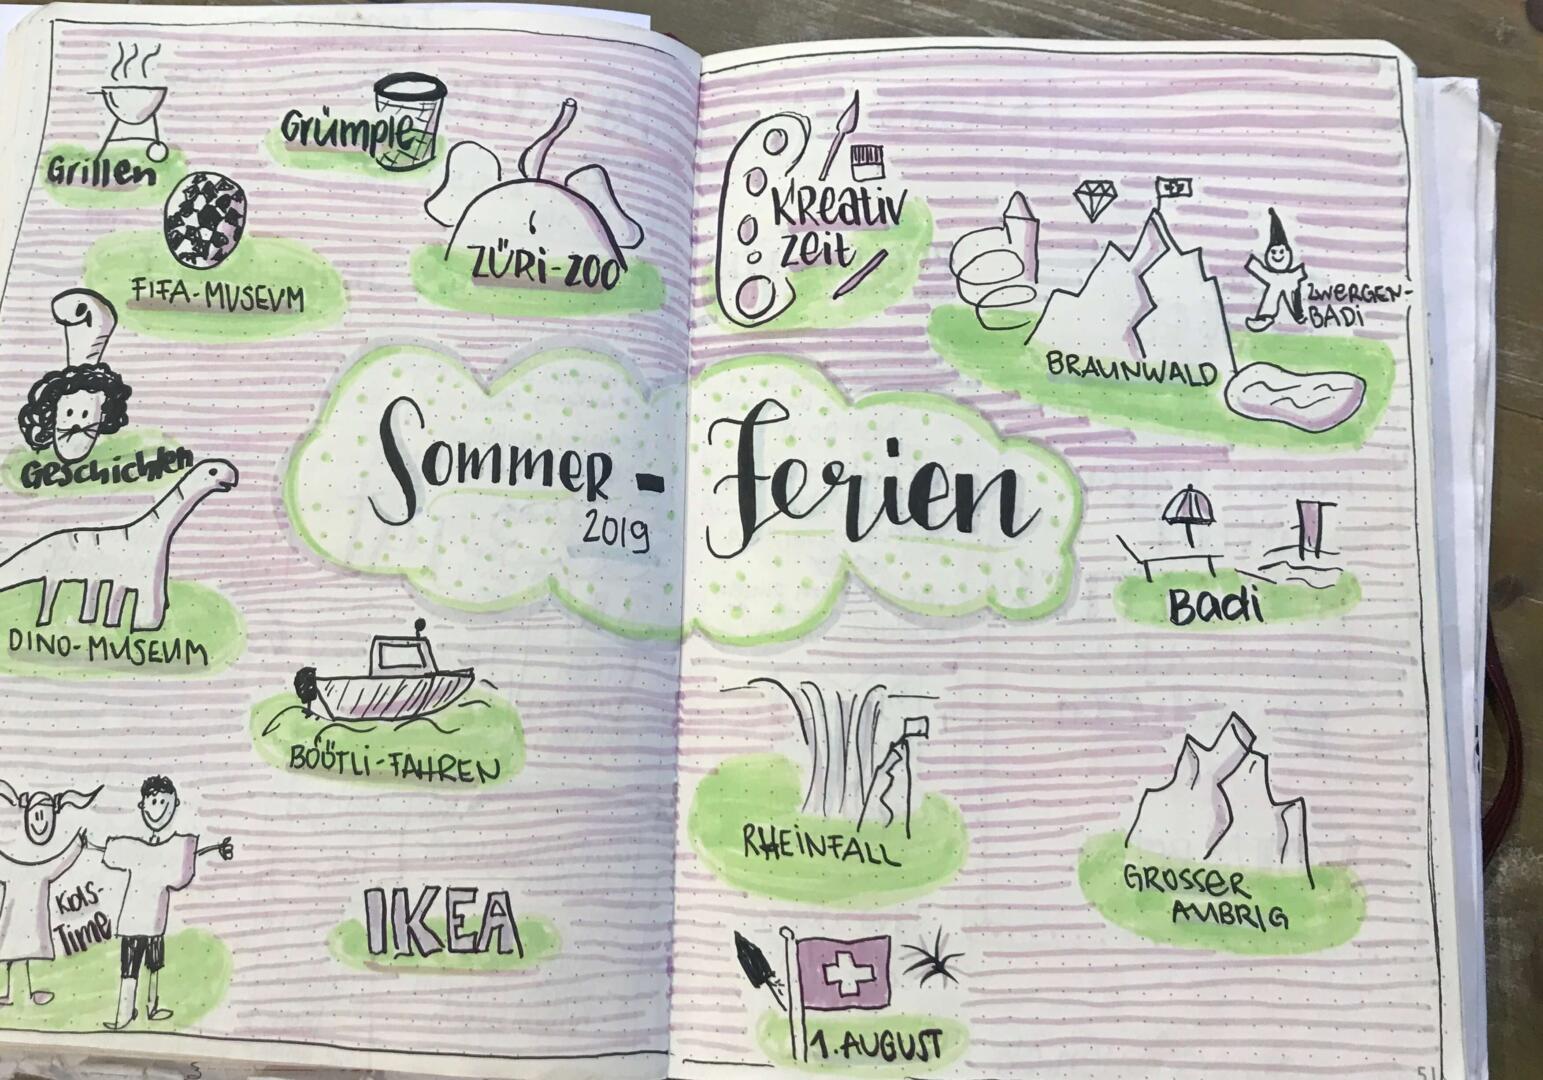 Grillen
Grümple
FIFA-MUSEUM
ZÜRi-ZOO
Geschichten
DINO-MUSEUM
Sommer-
2019
BÖÖTLI-FAHREN
Kids-
Time
IKEA
KReativ
Zeit
BRAUNWALD
ZWERGEN-
BADi
Ferien
Badi
RHEINFALL
GROSSER
AUBRIG
1. AUGUST
51